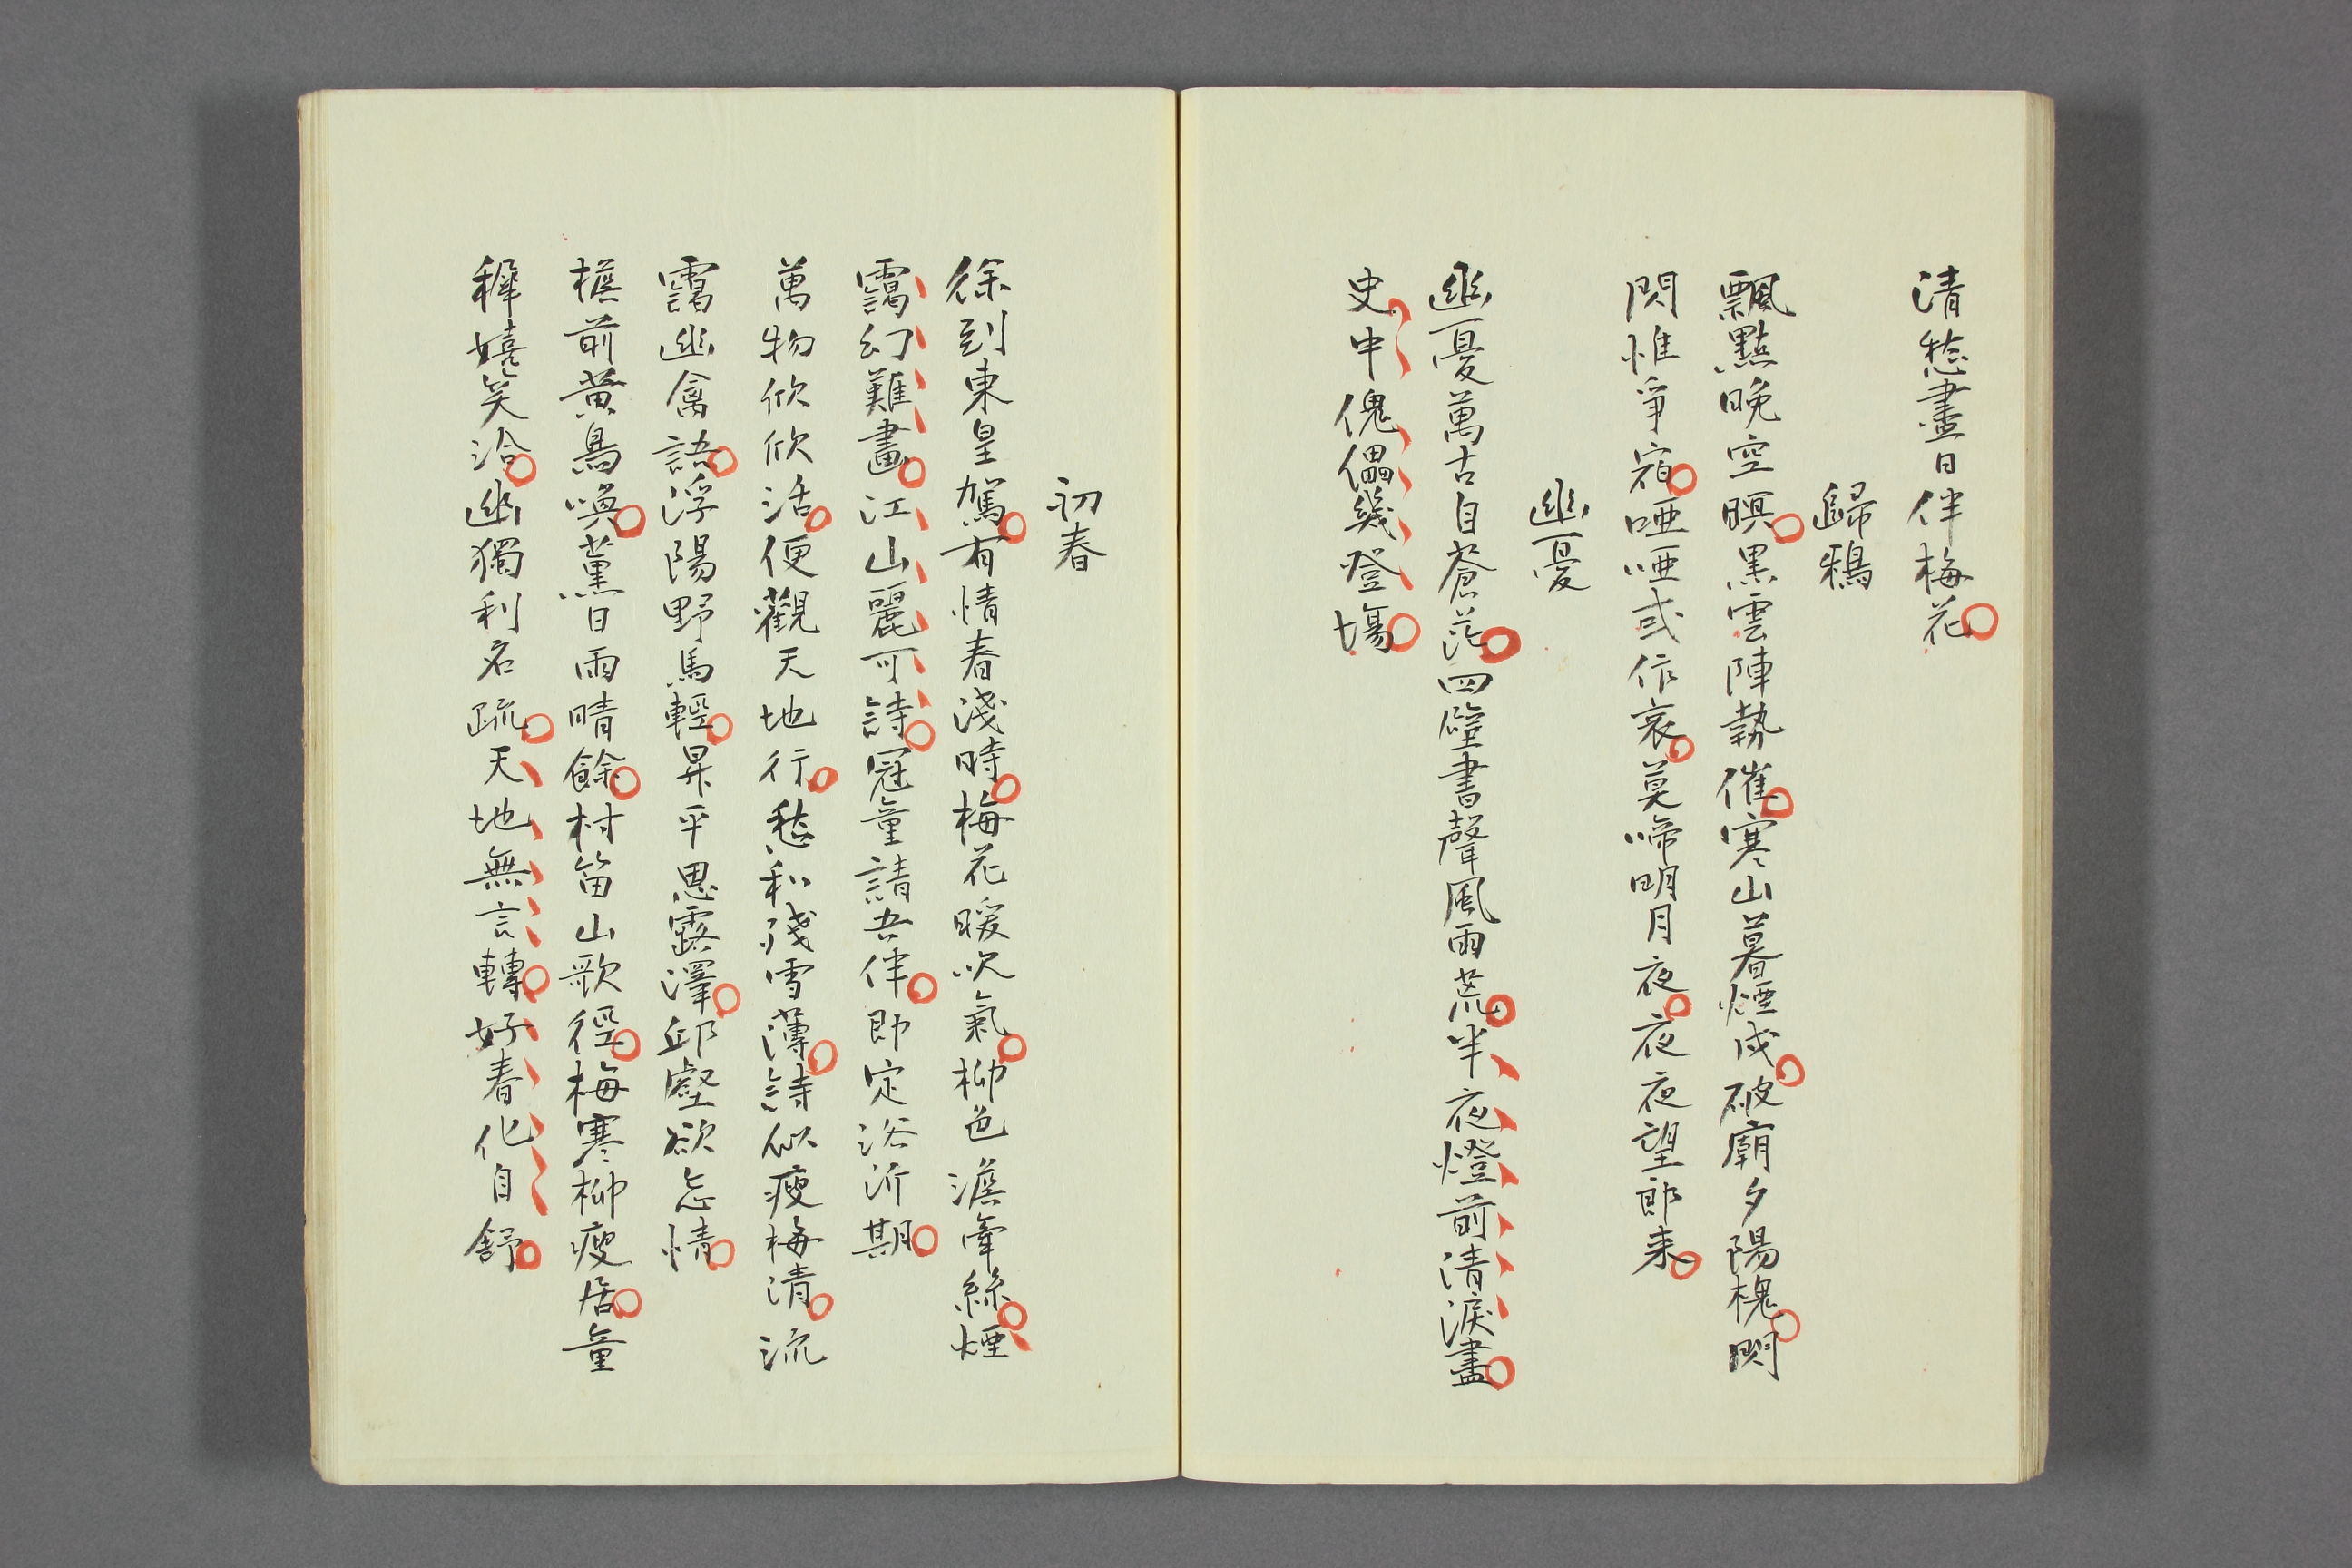 清愁盡日伴梅花
歸鴉
飄點晚空暝黒雲陣勢催寒山暮煙戍破廟夕陽槐閃
閃惟爭宿啞啞或作哀莫啼明月夜夜夜望郎来
幽憂
幽憂萬古自蒼茫四壁書聲風雨荒半夜燈前清淚盡
史中傀儡幾登塲
初春
徐到東皇駕有情春淺時梅花暖吹氣柳色澹牽絲煙
靄幻難畫江山麗可詩冠童請吾伴即定浴沂期
萬物欣欣活便觀天地行愁和殘雪薄詩似瘦梅清流
靄幽禽語浮陽野馬輕昇平恩露澤邱壑欲忘情
檐前黄鳥喚薫日雨晴餘村笛山歌徑梅寒柳瘦居童
穉嬉笑洽幽獨利名疏天地無言轉好春化自舒